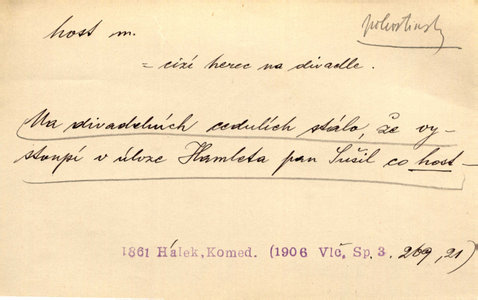 host m.
= cizí herec na divadle.
Na divadelních cedulích stálo, že vy-
stoupí v úloze Hamleta pan Sušil co host -
1861 Hálek, Komed. (1906 Vlč. Sp. 3. 269, 21)